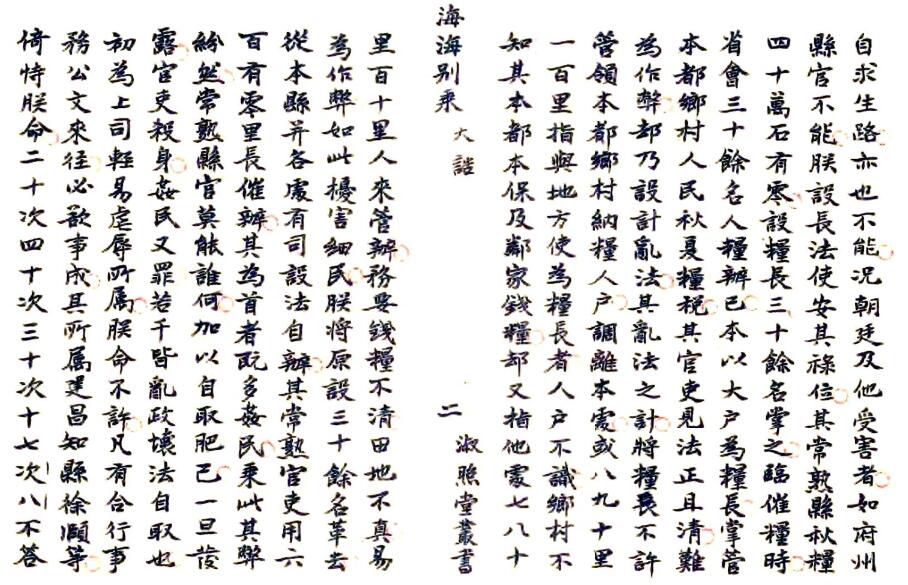 自求生路亦也不能况朝廷及他受害者如府州
縣官不能朕設長法使安其祿位其常熟縣秋糧
四十萬石有零設糧長三十餘名掌之臨催糧時
省會三十餘名人糧辦已本以大戶為糧長掌管
本都鄉村人民秋夏糧稅其官吏見法正且清難
為作弊却乃設計亂法其亂法之計將糧長不許
管領本都鄉村納糧人戶調離本處或八九十里
一百里指與地方使為糧長者人戶不識鄉村不
知其本都本保及鄰家錢糧却又指他處七八十
海海別乘 大誥 二 淑照堂叢書
里百十里人來管辦務要錢糧不清田地不真易
為作弊如此擾害細民朕將原設三十餘名革去
從本縣并各處有司設法自辦其常熟官吏用六
百有零里長催辦其為首者既多姦民乘此其弊
紛然常熟縣官莫能誰何加以自取肥己一旦發
露官吏殺身姦民又罪若干皆亂政壞法自取也
初為上司輕易虐辱所属朕命不許凡有合行事
務公文來往必欲事成其所属建昌知縣徐頥等
倚恃朕命二十次四十次三十次十七次八不答